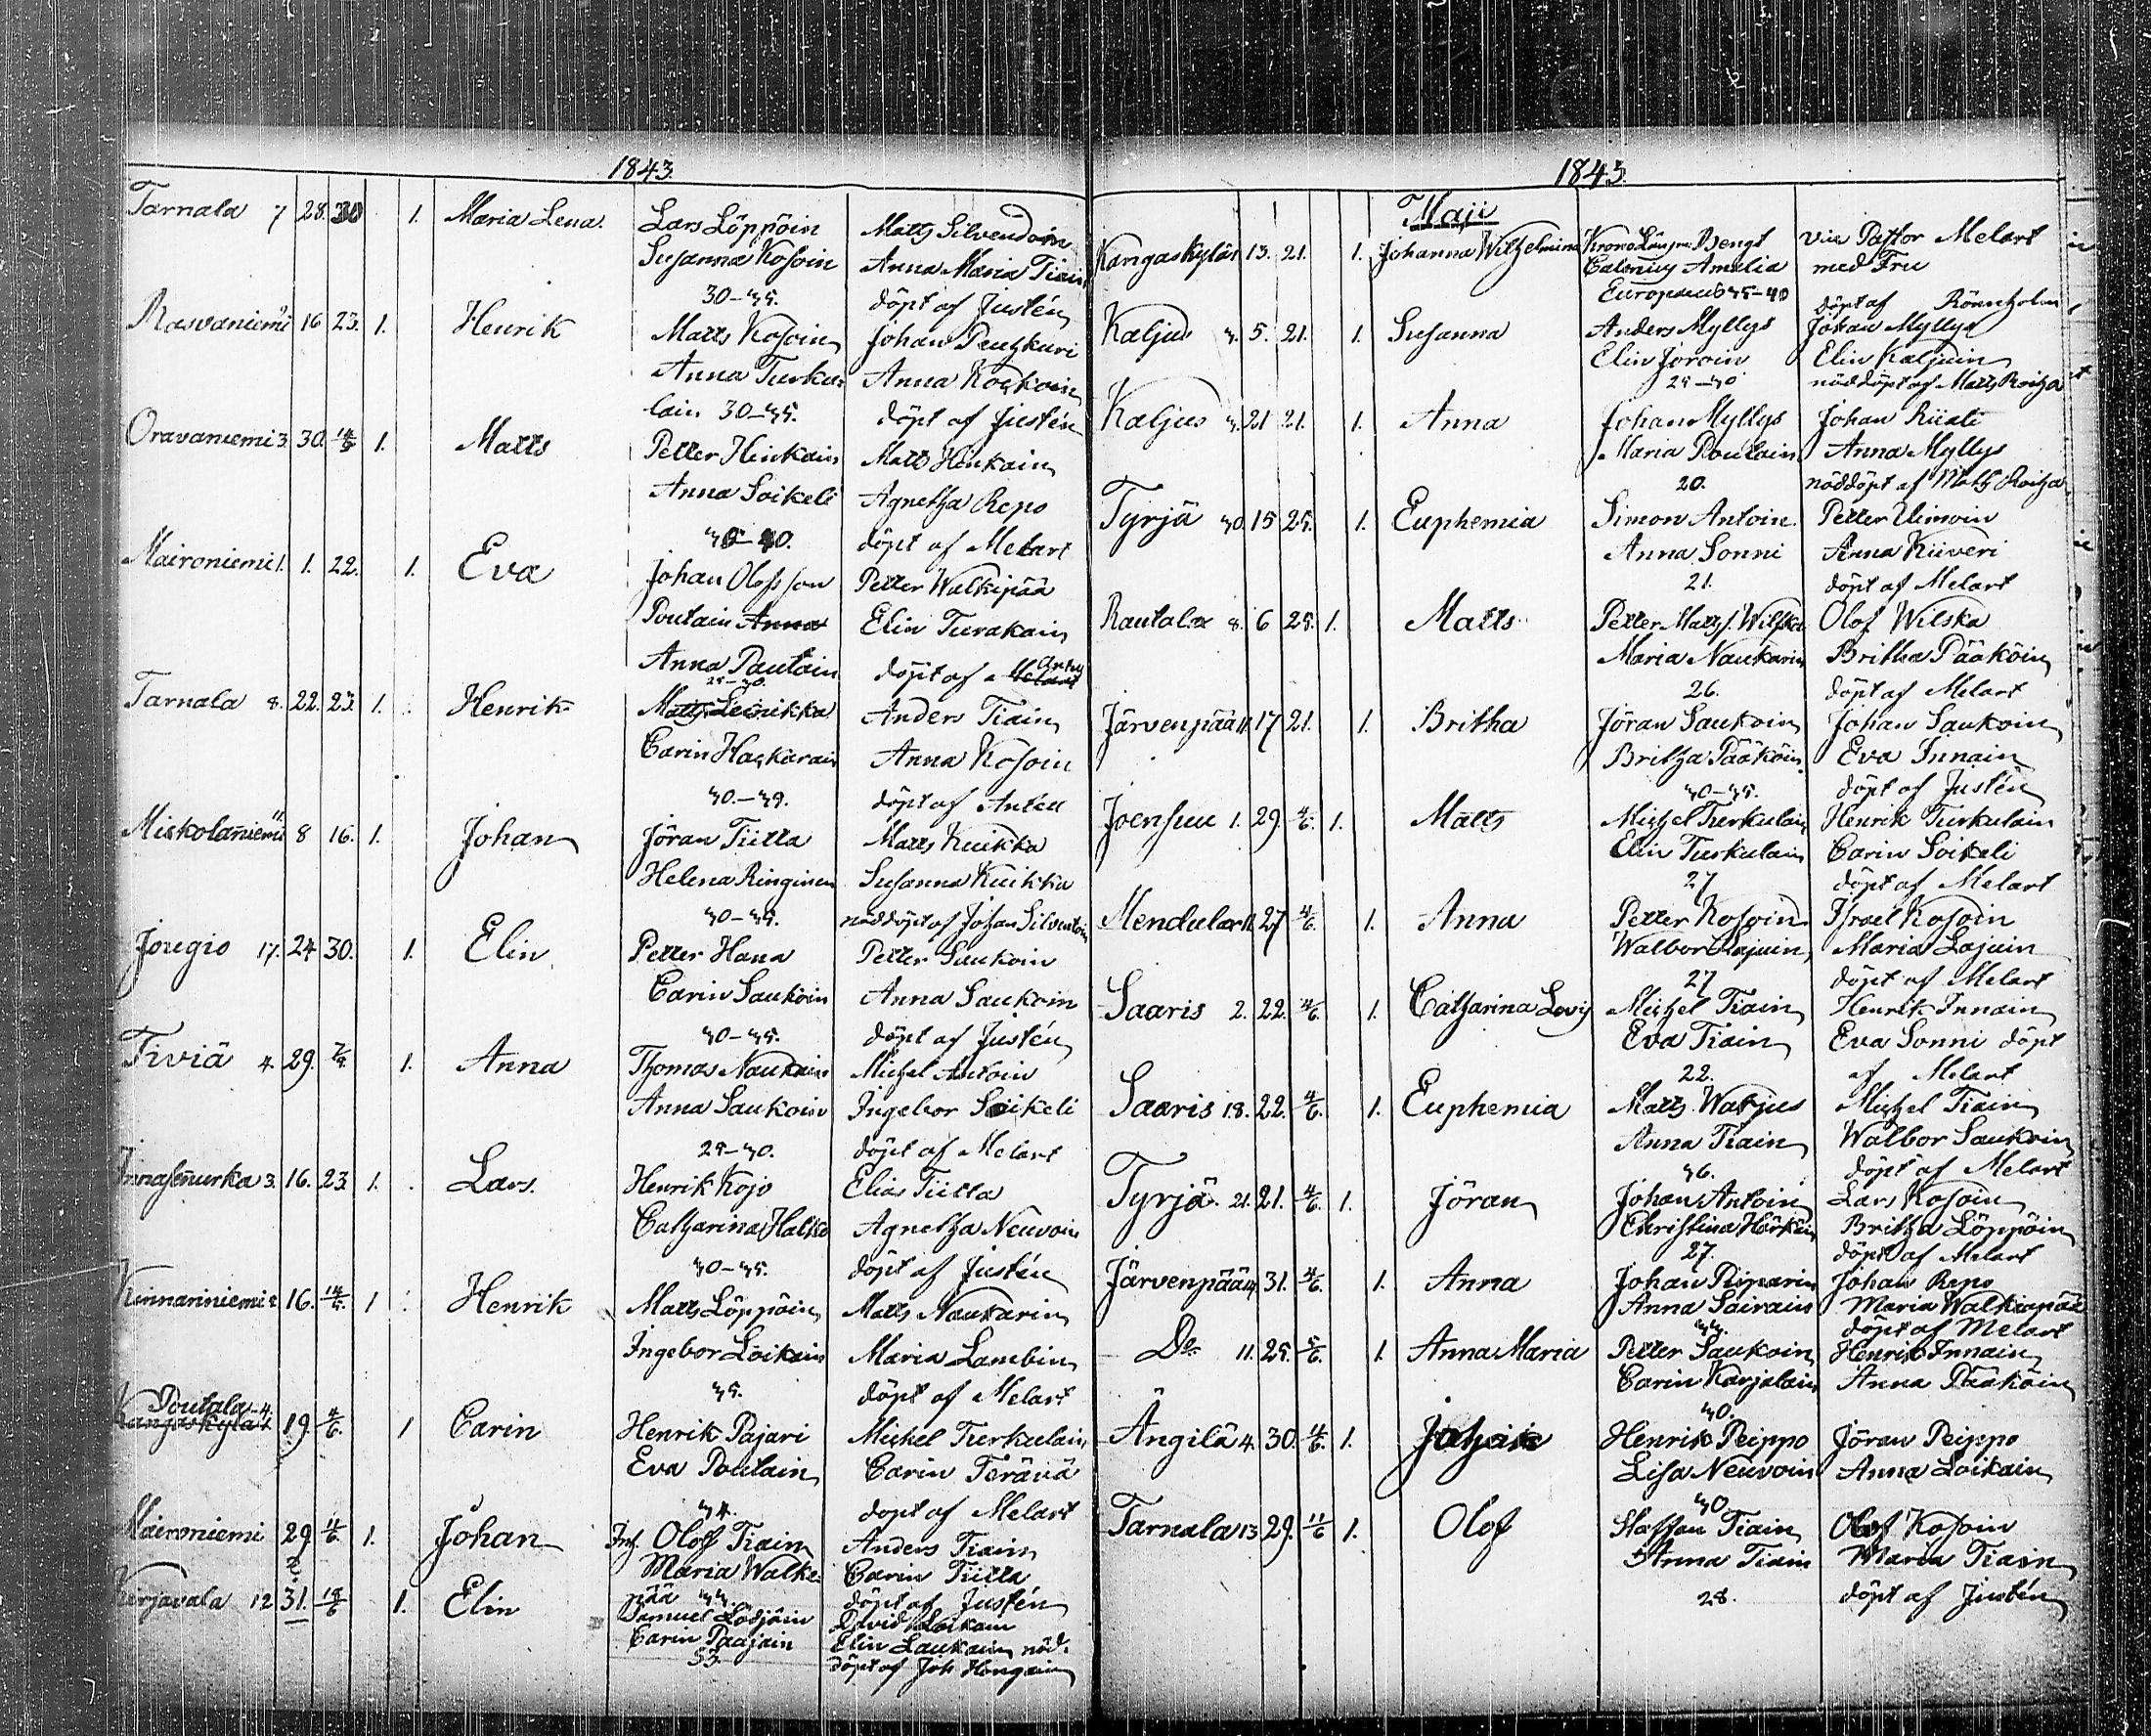 1843.
Tarnala 7 28. 30 1. Maria Lena. Lars Löppöin Matts Silvendoin
Susanna Kosoin Anna Maria Tiain
30-35. döpt af Justén
Rasvaniemi 9 16 23. 1. Henrik Matts Kosoin Johan Pentzkuri
Anna Turku- Anna Koskoin
lain 30-35. döpt af Justén
Oravaniemi 3. 30. 14/5 1. Matts Petter Hinkain Matts Hinkain
Anna Soikeli Agnetha Repo
döpt af Melart
Maironiemi 1. 1. 22. 1. Eva Johan Olofsson Petter Walkipää
Poutain Anna Elin Turakain
Anna Poutain döpt af Melart
25-30.
Tarnala 8. 22. 23. 1. Henrik Matts Leinikka Anders Tiain
Carin Haskarain Anna Kosoin
döpt af Antell
Miskolaniemi 11. 8 16. 1. Johan Jöran Tiitta Matts Kuikka
Helena Ringinen Susanna Kuikka
30-35. nöddöpt af Johan Silventoin
Jousio 17. 24 30. 1. Elin Petter Hana Petter Saukoin
Carin Saukoin Anna Saukoin
30-35. döpt af Justén
Tiviä 4. 29. 1. Anna Thomas Naukarin Michel Antoin
Anna Saukoin Ingebor Soikeli
25-30. döpt af Melart
3. 16. 23 1. Lars. Henrik Kojo Elias Tiitta
Catharina Halko Agnetha Neuvoin
30-35. döpt af Justén
Kinnarniemi 2 16. 14/5. 1 Henrik Matts Löppöin Matts Naukarin
Ingebor Loikain Maria Lambin
35. döpt af Melart
Poutala 4.
Kangaskylä 19. 4/6. 1 Carin Henrik Pajari Michel Turkulain
Eva Poutain Carin Terävä
34. döpt af Melart
Maironiemi 2 29. 4/6. 1. Johan Inh. Olof Tiain Anders Tiain
Maria Walki- Carin Tiitta
pää 33. döpt af Justén
Kirjavala 12 31. 18/6 1. Elin Samuel Lodjöin David Loikain
Carin Paajain Elin Laukain nöd-
33. döpt af Joh Hongain
1843.
Maji
Kangaskylä 1 13. 21. 1. Johanna Wilhelmina Krono Länsm: Bengt vice Pastor Melart
Calenius Amelia med Fru
Europaeus 35-40 döpt af Rönnholm
Kaljus 3. 5. 21. 1. Susanna Anders Myllys Johan Myllys
Elin Joroin Elin Kaljuin
25-30 nöddöpt af Matts Roitza
Kaljus 3. 21 21. 1. Anna Johan Myllys Johan Riiali
Maria Poutain Anna Myllys
20. nöddöpt af Matts Roitza
Tyrjä 30. 15 25. 1. Euphemia Simon Antoin Petter Uimoin
Anna Sonni Anna Kiiveri
21. döpt af Melart
Rautala 8. 6 25. 1. Matts Petter Matts s. Wilska Olof Wilska
Maria Naukarin Britha Pääköin
26. döpt af Melart
Järvenpää 11 17 21. 1. Britha Jöran Saukoin Johan Saukoin
Britha Pääköin Eva Innain
30-35. döpt af Justén
Joensuu 1. 29. 4/6. 1. Matts Michel Turkulain Henrik Turkulain
Elin Turkulain Carin Soikeli
27 döpt af Melart
Mendula 11. 27 4/6. 1. Anna Petter Kosoin Israel Kosoin
Walbor Lajuin Maria Lajuin
27 döpt af Melart
Saaris 2. 22. 4/6. 1. Catharina Lovis Michel Tiain Henrik Innain
Eva Tiain Eva Sonni döpt
22. af Melart
Saaris 18. 22. 4/6. 1. Euphemia Matts Warjus Michel Tiain
Anna Tiain Walbor Saukoin
36. döpt af Melart
Tyrjä 21. 21. 4/6. 1. Jöran Johan Antoin Lars Kosoin
Christina Härköin Britha Löppöin
27. döpt af Melart
Järvenpää 14 31. 4/6. 1. Anna Johan Piiparin Johan Repo
Anna Sairain Maria Walkiapää
33. döpt af Melart
Do 11. 25. 5/6. 1. Anna Maria Petter Saukoin Henrik Innain
Carin Karjalain Anna Pääköin
30.
Ängilä 4. 30. 4/6. 1. Henrik Peippo Jöran Peippo
Lisa Neuvoin Anna Loikain
30
Tarnala 13 29. 11/6 1. Olof Staffan Tiain Olof Kosoin
Anna Tiain Maria Tiain
28. döpt af Justén